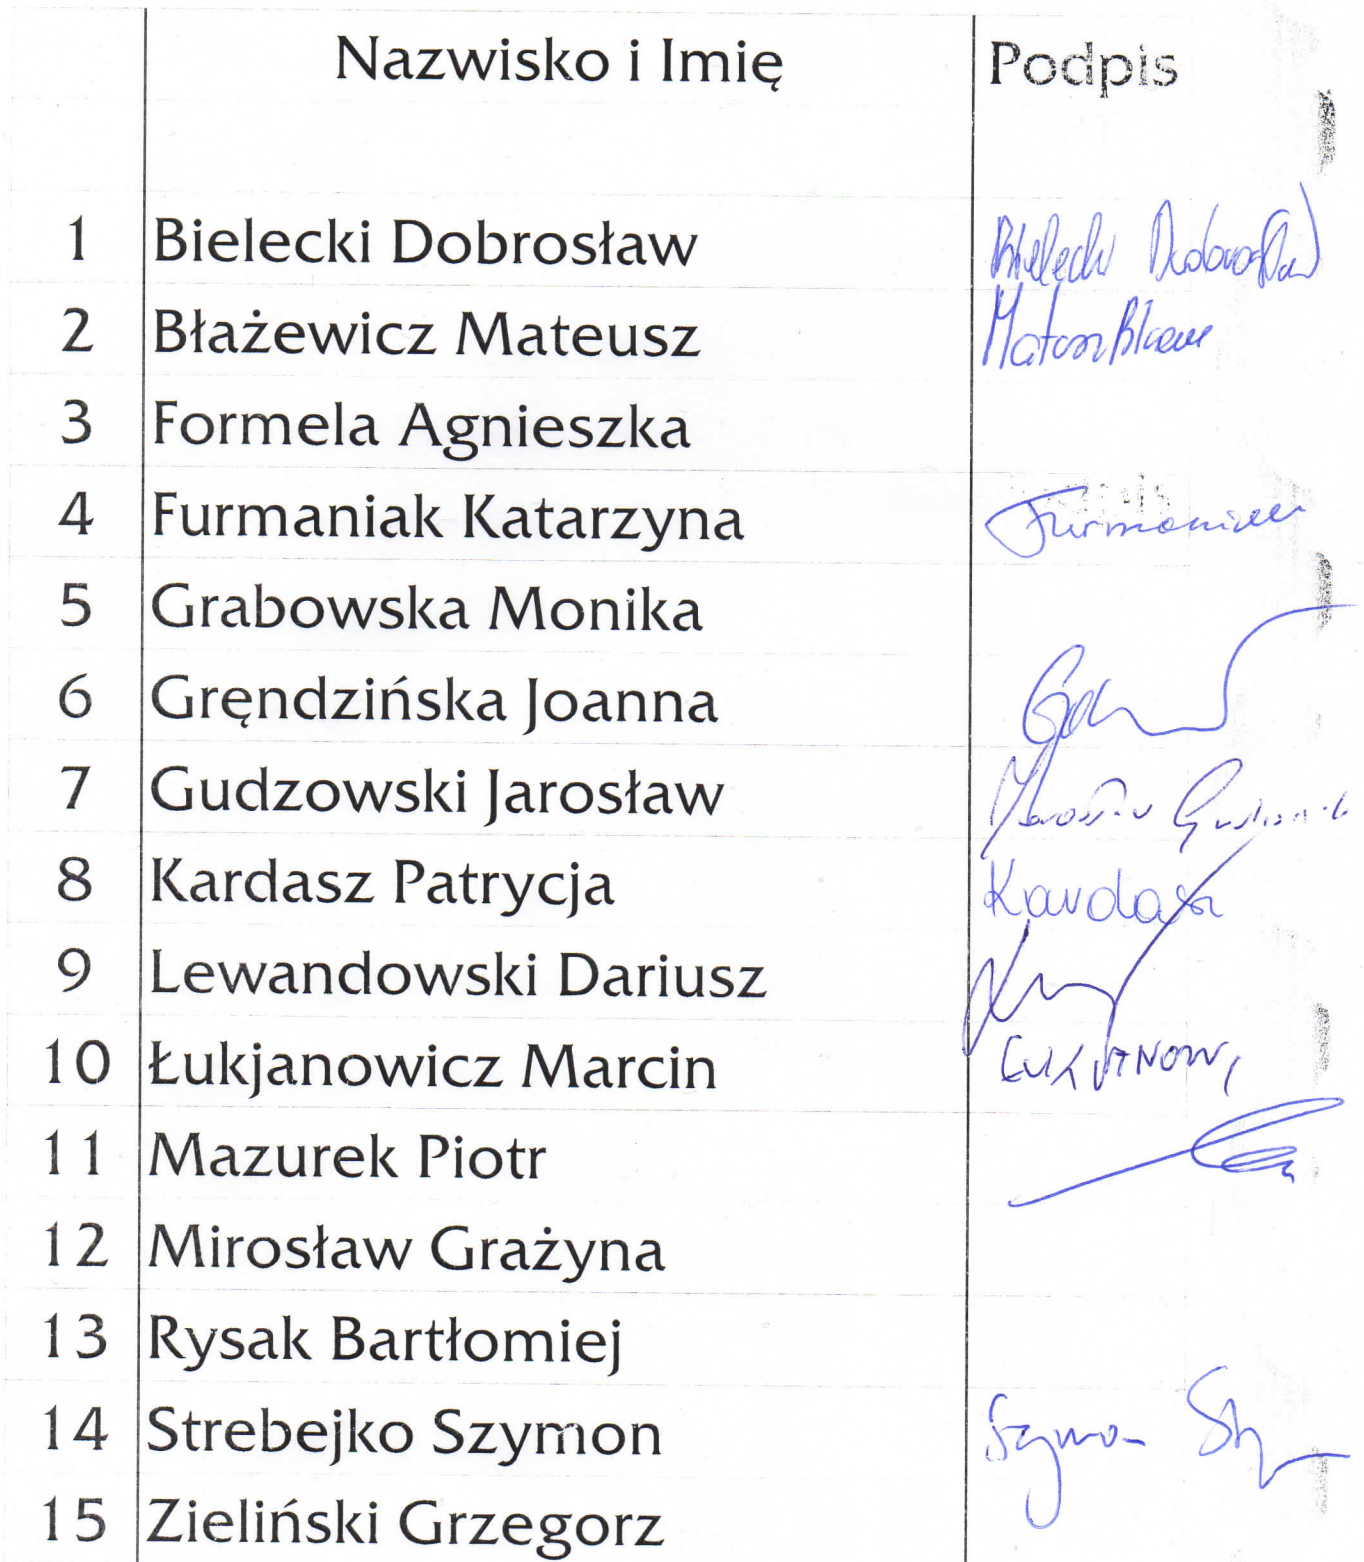 Nazwisko i Imię Podpis
1 Bielecki Dobrosław Bielecki Dobrosław
2 Błażewicz Mateusz
3 Formela Agnieszka
4 Furmaniak Katarzyna Furmaniak
5 Grabowska Monika
6 Gręndzińska Joanna
7 Gudzowski Jarosław Jarosław
8 Kardasz Patrycja Kardasz
9 Lewandowski Dariusz
10 Łukjanowicz Marcin
11 Mazurek Piotr
12 Mirosław Grażyna
13 Rysak Bartłomiej
14 Strebejko Szymon Szymon
15 Zieliński Grzegorz